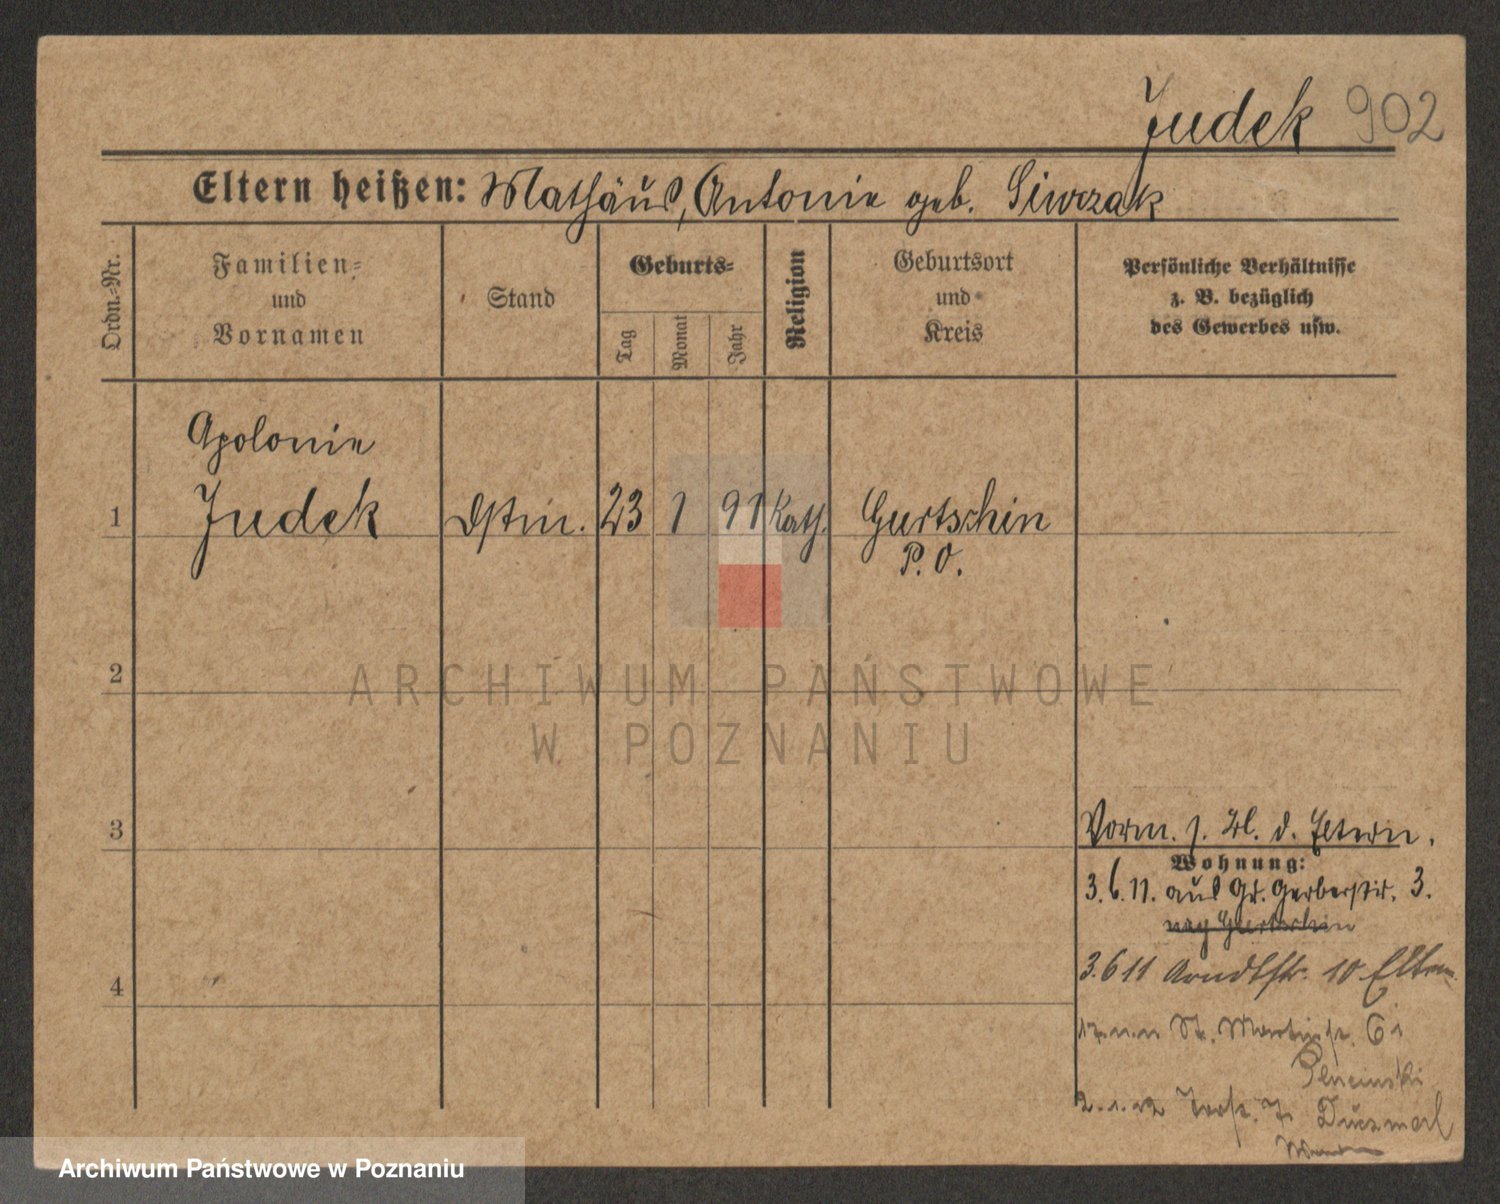 Judek 902
Eltern heißen: Mathäus, Antonie geb. Siwczak
Ordn.-Nr.
Familien-
und
Vornamen
Stand
Geburts-
Tag
Monat
Jahr
Religion
Geburtsort
und
Kreis
Persönliche Verhältnisse
z. B. bezüglich
des Gewerbes usw.
Apolonie
1 Judek Dstm. 23 1 91 Kath. Gurtschin
P. O.
2
3
4
Vorm. s. Bl. d. Eltern.
Wohnung:
3.6.11. aus Gr. Gerberstr. 3.
nach Gurtschin
3.6 11 Arndtstr. 10 Eltern
St. Martinstr. 6
ARCHIWUM PAŃSTWOWE
W POZNANIU
Archiwum Państwowe w Poznaniu